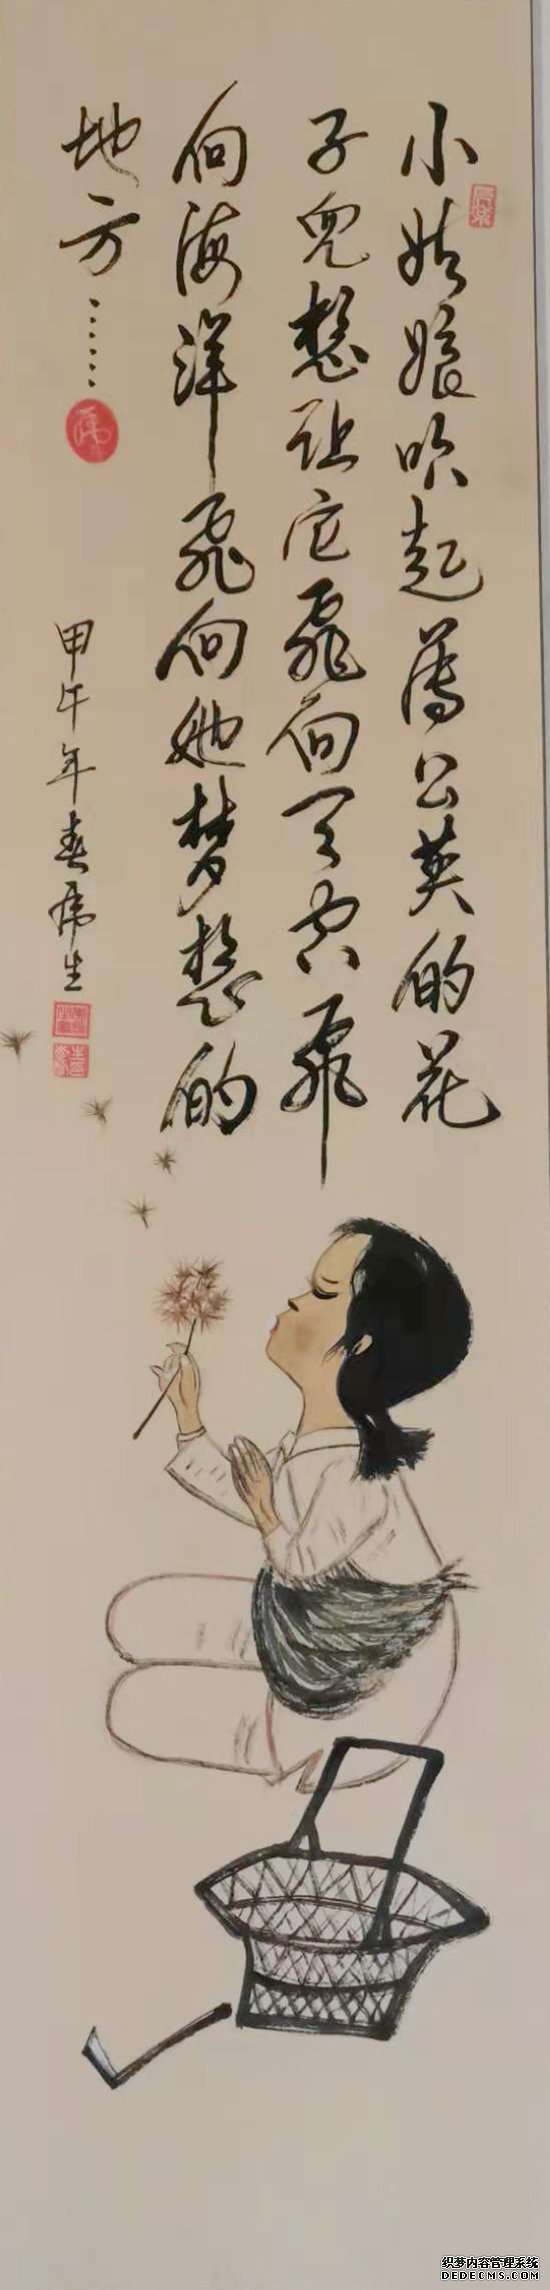 小姑娘吹起蒲公英的花
子儿想让它飞向天空飞
向海洋飞向她梦想的
地方……
甲午年春虎生
织梦内容管理系统
DEDECMS.COM